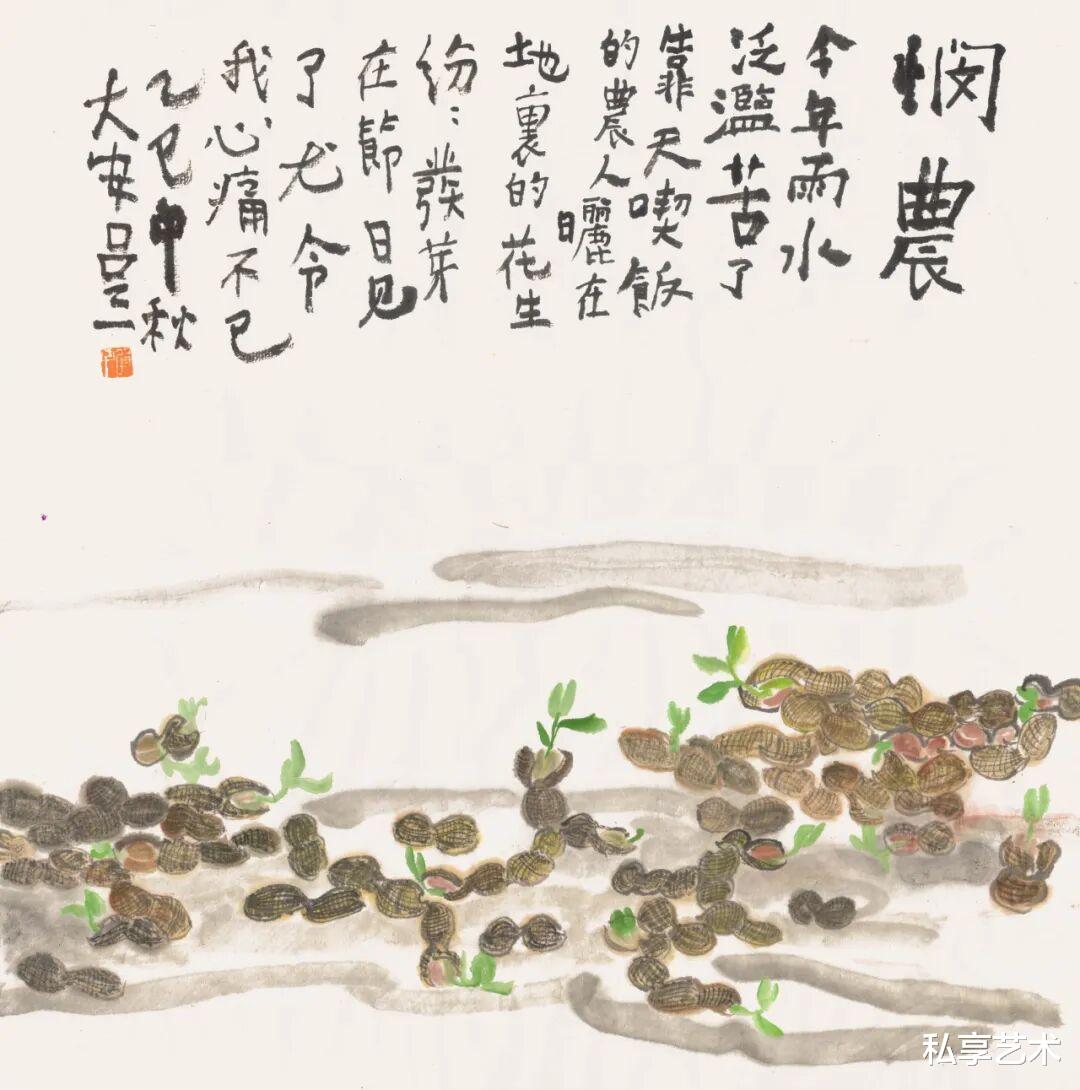 悯農
今年雨水
泛濫苦了
靠天喫飯
的農人曬在
地裏的花生
纷〻發芽
在節日见
了尤令
我心痛不已
乙巳中秋
大安吕三
私享艺术